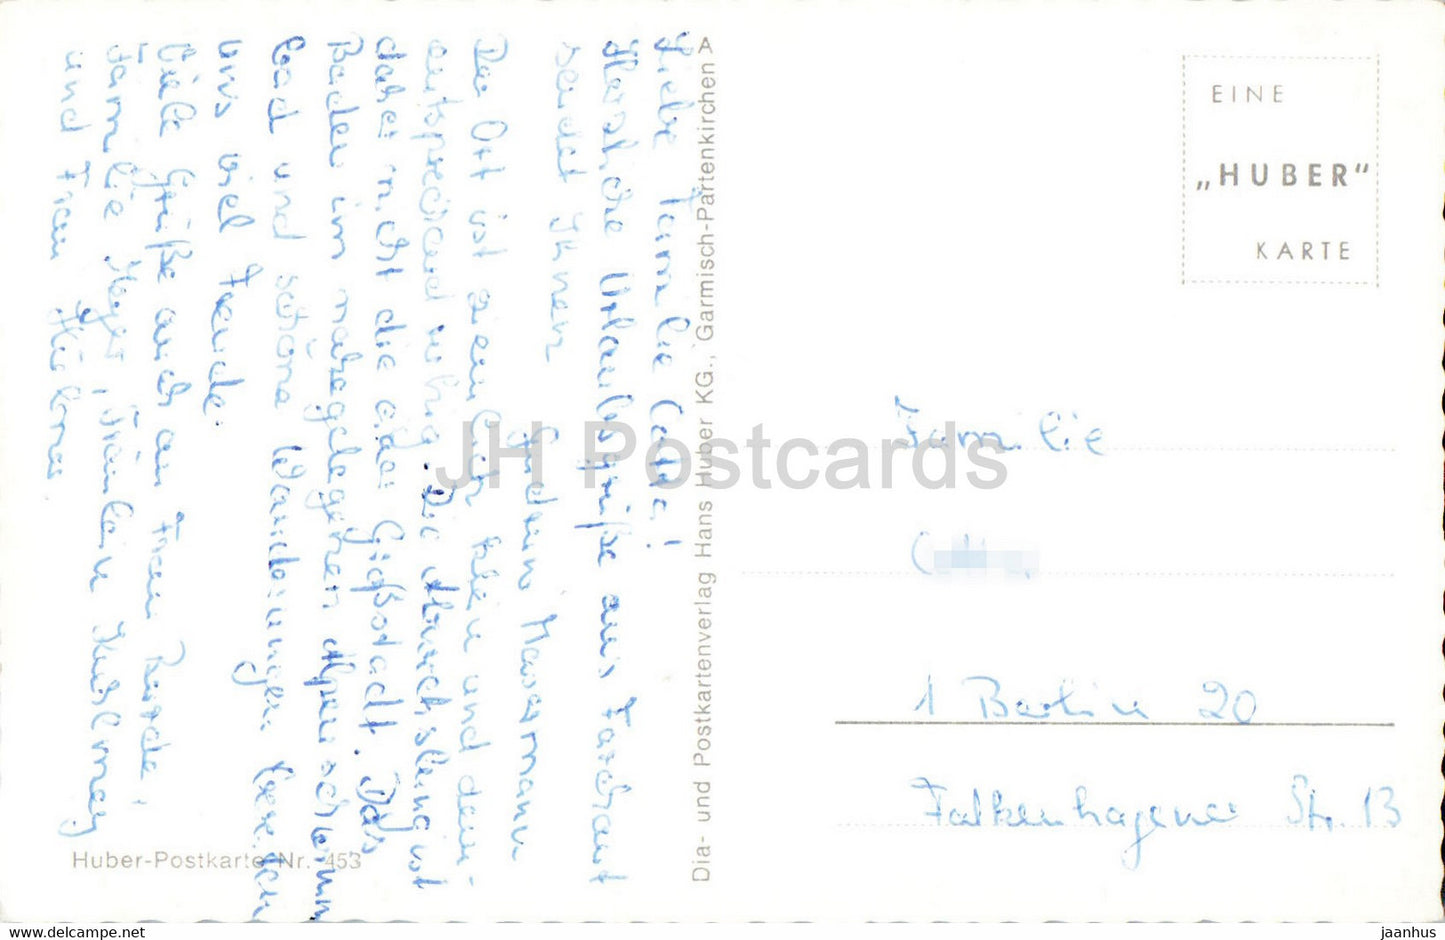 Liebe Familie
Herzliche Urlaubsgrüße aus
sendet Ihnen
Gudrun
Der Ort ist ziemlich klein und dem-
entsprechend ruhig. Die Umstellung ist
daher nicht die einer Großstadt. Das
Baden im nahegelegenen Alpenschwimm-
bad und schöne Wanderungen bereiten
uns viel Freude.
Viele Grüße auch an Frau
Familie Fräulein
und Frau
Dia- und Postkartenverlag Hans Huber KG., Garmisch-Partenkirchen A
Huber-Postkarte Nr. 453
EINE
„HUBER"
KARTE
Familie
1 Berlin 20
Falkenhagener Str. 13
JH Postcards
jaanhus
www.delcampe.net